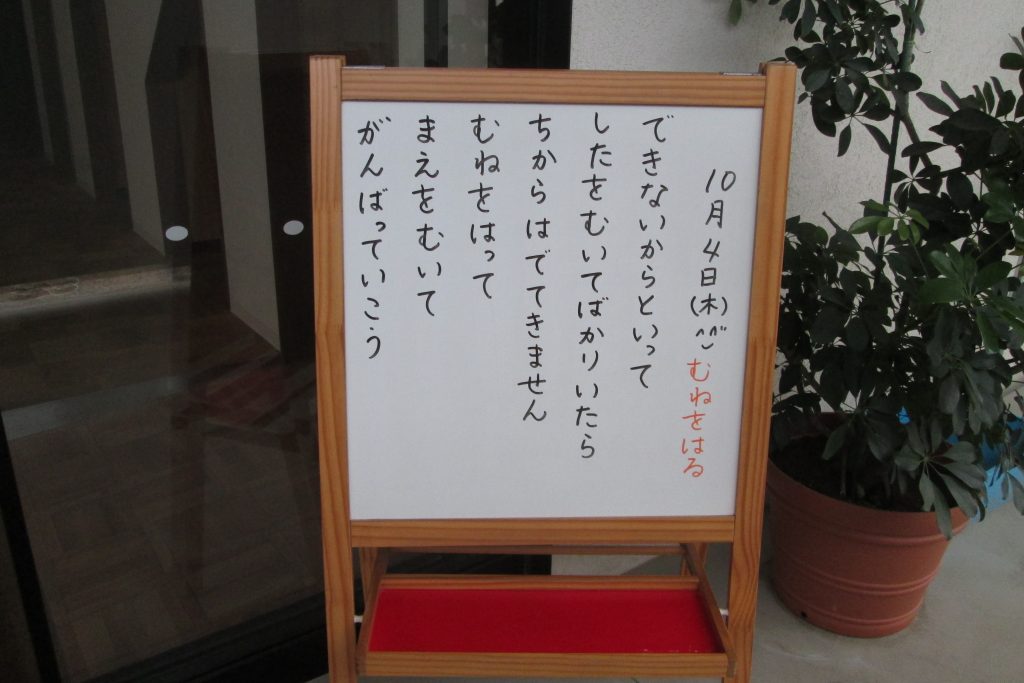 10月4日(木)^^ むねをはる
できないからといって
したをむいてばかりいたら
ちからはでてきません
むねをはって
まえをむいて
がんばっていこう